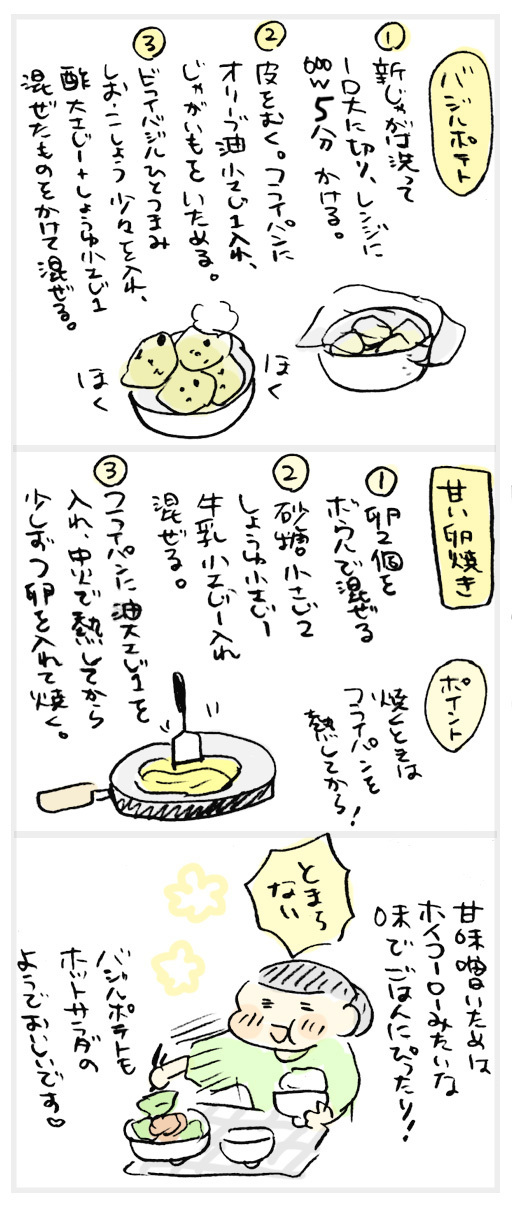 バジルポテト
①
新じゃがは洗って
一口大に切り、レンジに
600W5分かける。
②
皮をむく。フライパンに
オリーブ油小さじ1入れ、
じゃがいもをいためる。
③
ドライバジルひとつまみ
しお・こしょう少々を入れ、
酢大さじ1+しょうゆ小さじ1
混ぜたものをかけて混ぜる。
ほく
ほく
甘い卵焼き
①
卵2個を
ボウルで混ぜる
②
砂糖小さじ2
しょうゆ小さじ1
牛乳小さじ1入れ
混ぜる。
③
フライパンに油大さじ1を
入れ、中火で熱してから
少しずつ卵を入れて焼く。
ポイント
焼くときは
フライパンを
熱してから!
甘味噌いためは
ホイコーローみたいな
味でごはんにぴったり!
とまら
ない
バジルポテトも
ホットサラダの
ようでおいしいです♡